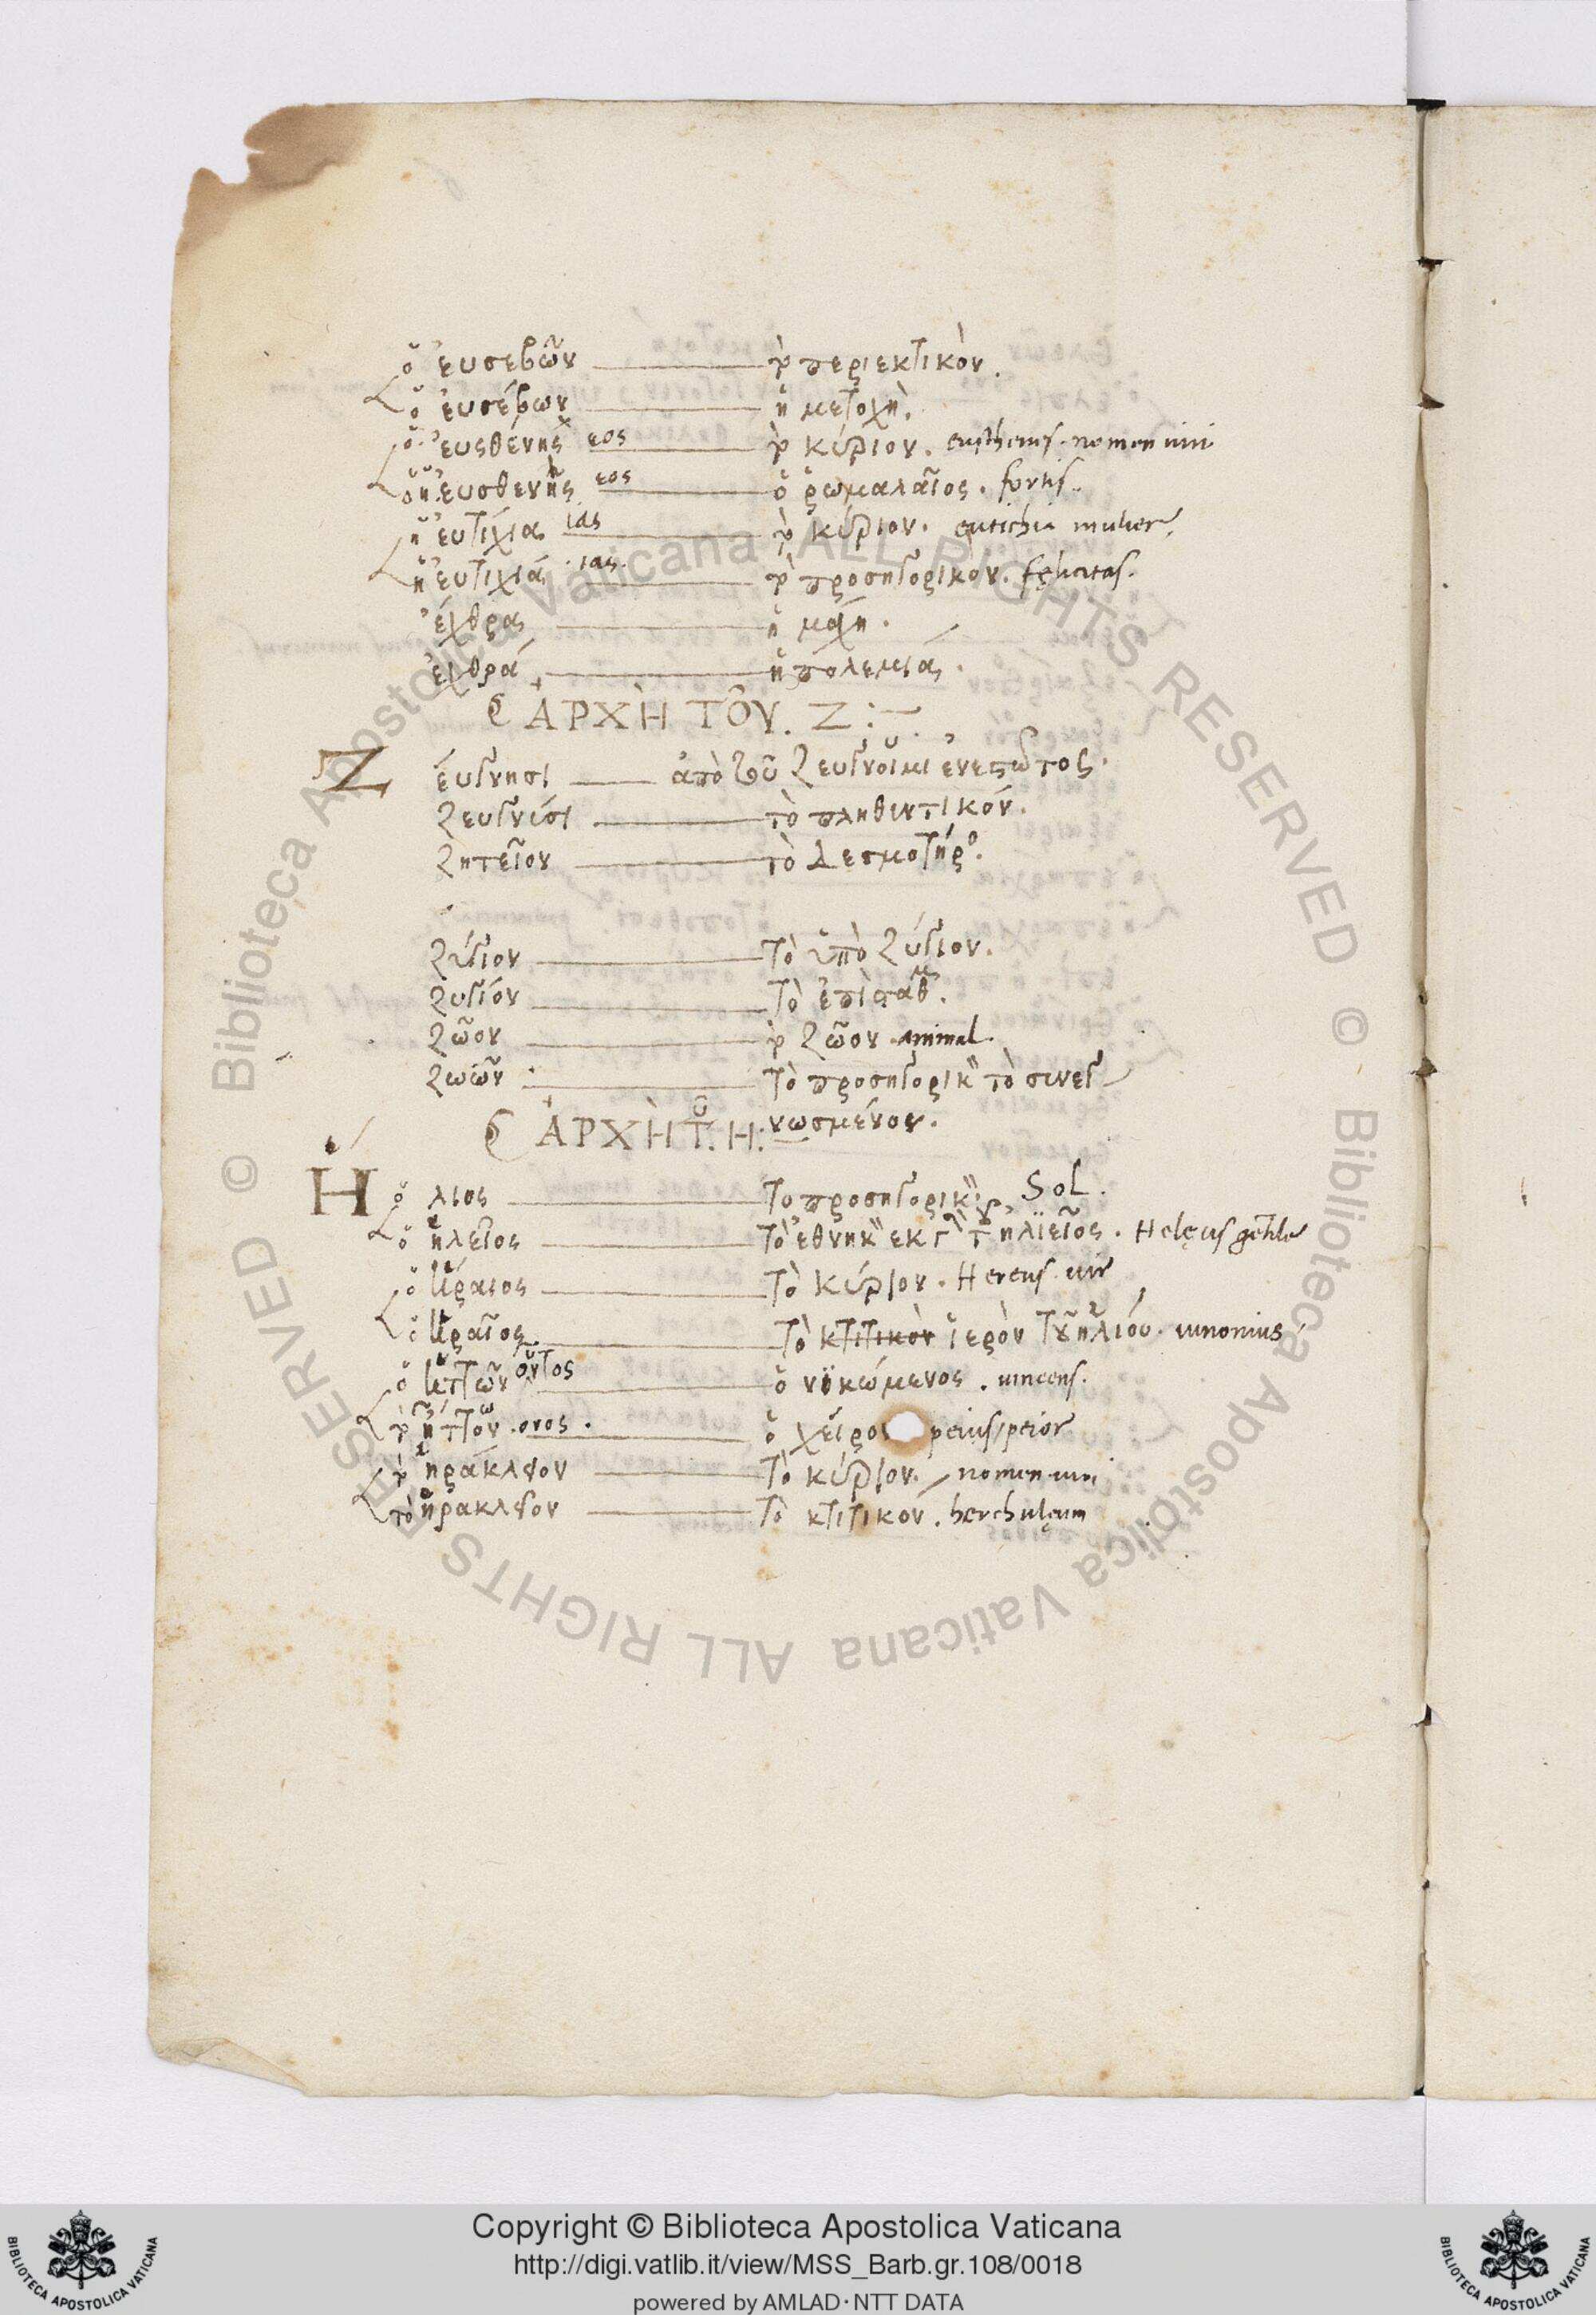 ὁ ἐυσεβῶν τὸ περιεκτικὸν.
ὁ ἐυσέβων ἡ μετοχὴ.
ὁ ἐυσθένης εος τὸ κύριον. eusthenes nomen uiri
ὁ ἡ ἐυσθενῆς εος ὁ ῥωμαλαῖος. fortis.
ἡ ἐυτίχια ιας τὸ κύριον. eutichia mulier.
ἡ ἐυτιχιά ιας. τὸ προσηγορικὸν. felicitas.
ἔχθρας ἡ μάχη.
ἐχθρά ἡ πολεμιά.
ἈΡΧῊ ΤΟΥ͂. Ζ :~
Ζ έυγνησι ἀπὸ τοῦ ζευγνοῖμι ἐνεστῶτος.
ζευγνίσι τὸ πληθιντικόν.
ζητεῖον τὸ δεσμοτήρο.
ζύγιον τὸ ὑπὸ ζύγιον.
ζυγίον τὸ ἐπὶ σταθμ.
ζῶον τὸ ζῶον animal.
ζωῶν τὸ προσηγορικ τὸ σινεγ
νωσμένον.
ἈΡΧῊ Τ͂. Η:~
Ἥ ὁ λιος το προσηγορικ. Sol.
ὁ ἡλεῖος τὸ ἐθνηκ εκ τ ἡλϊεῖος. Helęus gentile
ὁ ἥραιος τὸ κύριον. Hereus uir
ὁ ἡραῖος τὸ κτιτικὸν ἱερὸν τοῦ ἡλιόυ. iunonius
ὁ ἡττῶν οῦντος ὁ νϊκώμενος. uincens.
τὸ ἥττον .ονος. ὁ χεῖρον peius / peior
τὸ ἡράκλειον τὸ κύριον. nomen uiri
τὸ ἡρακλεῖον τὸ κτιτικόν. herchulęum
Copyright © Biblioteca Apostolica Vaticana
http://digi.vatlib.it/view/MSS_Barb.gr.108/0018
powered by AMLAD·NTT DATA
© Biblioteca Apostolica Vaticana ALL RIGHTS RESERVED © Biblioteca Apostolica Vaticana ALL RIGHTS RESERVED
BIBLIOTECA APOSTOLICA VATICANA
BIBLIOTECA APOSTOLICA VATICANA